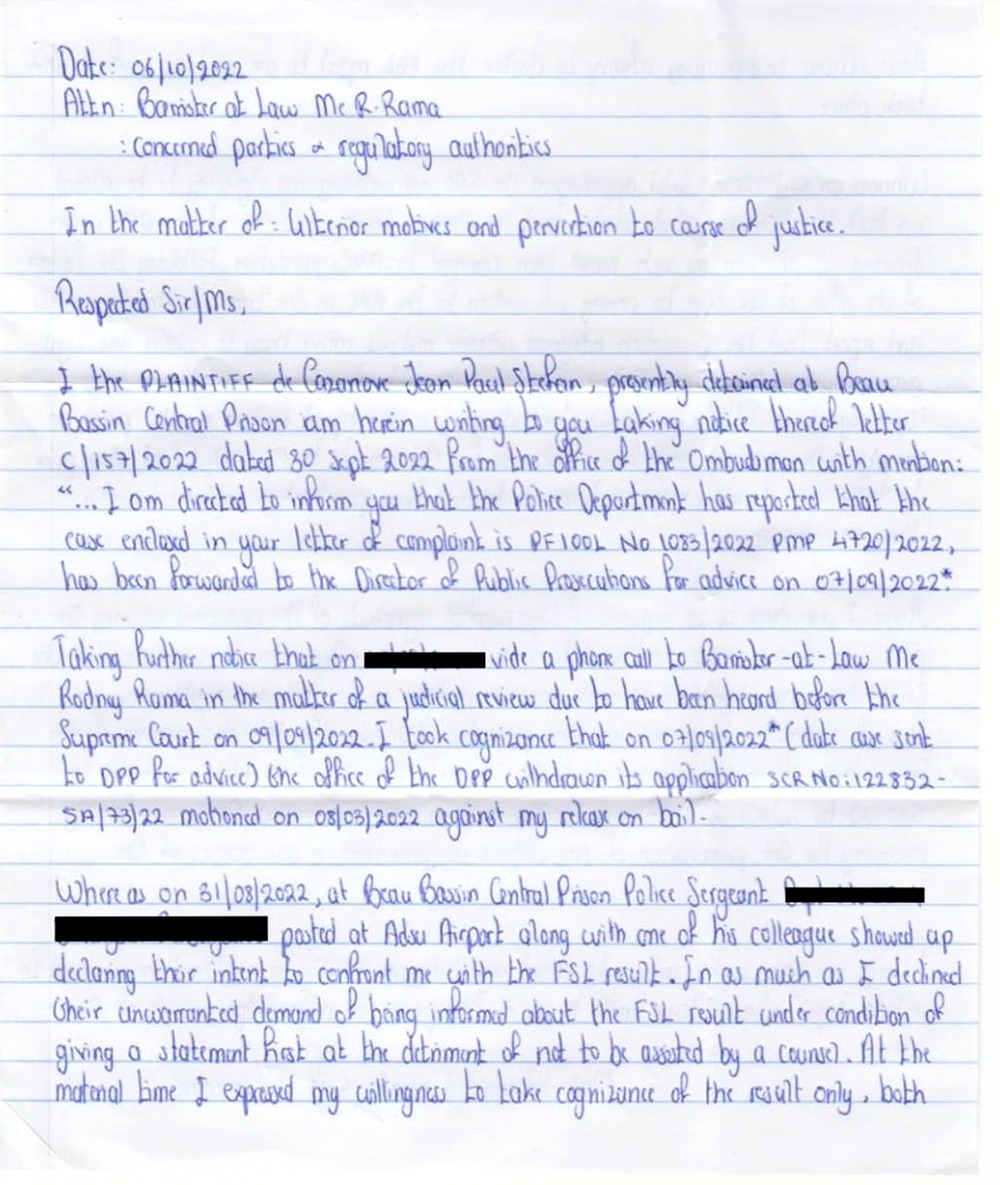 Date: 06/10/2022
Attn: Barrister at Law Me R. Rama
: concerned parties & regulatory authorities
In the matter of: Ulterior motives and pervertion to course of justice.
Respected Sir/Ms,
I the PLAINTIFF de Cazanove Jean Paul Stefan, presently detained at Beau
Bassin Central Prison am herein writing to you taking notice thereof letter
C/157/2022 dated 30 Sept 2022 from the office of the Ombudsman with mention:
"... I am directed to inform you that the Police Department has reported that the
case enclosed in your letter of complaint is PF100L No 1083/2022 PMP 4720/2022,
has been forwarded to the Director of Public Prosecutions for advice on 07/09/2022*
Taking further notice that on vide a phone call to Barrister-at-Law Me
Rodny Rama in the matter of a judicial review due to have been heard before the
Supreme Court on 09/09/2022. I took cognizance that on 07/09/2022* (date case sent
to DPP for advice) the office of the DPP withdrawn its application SCR NO:122832-
SA/73/22 motioned on 08/03/2022 against my release on bail.
Where as on 31/08/2022, at Beau Bassin Central Prison Police Sergeant
posted at Adsu Airport along with one of his colleague showed up
declaring their intent to confront me with the FSL result. In as much as I declined
their unwarranted demand of being informed about the FSL result under condition of
giving a statement first at the detriment of not to be assisted by a counsel. At the
material time I expressed my willingness to take cognizance of the result only, both